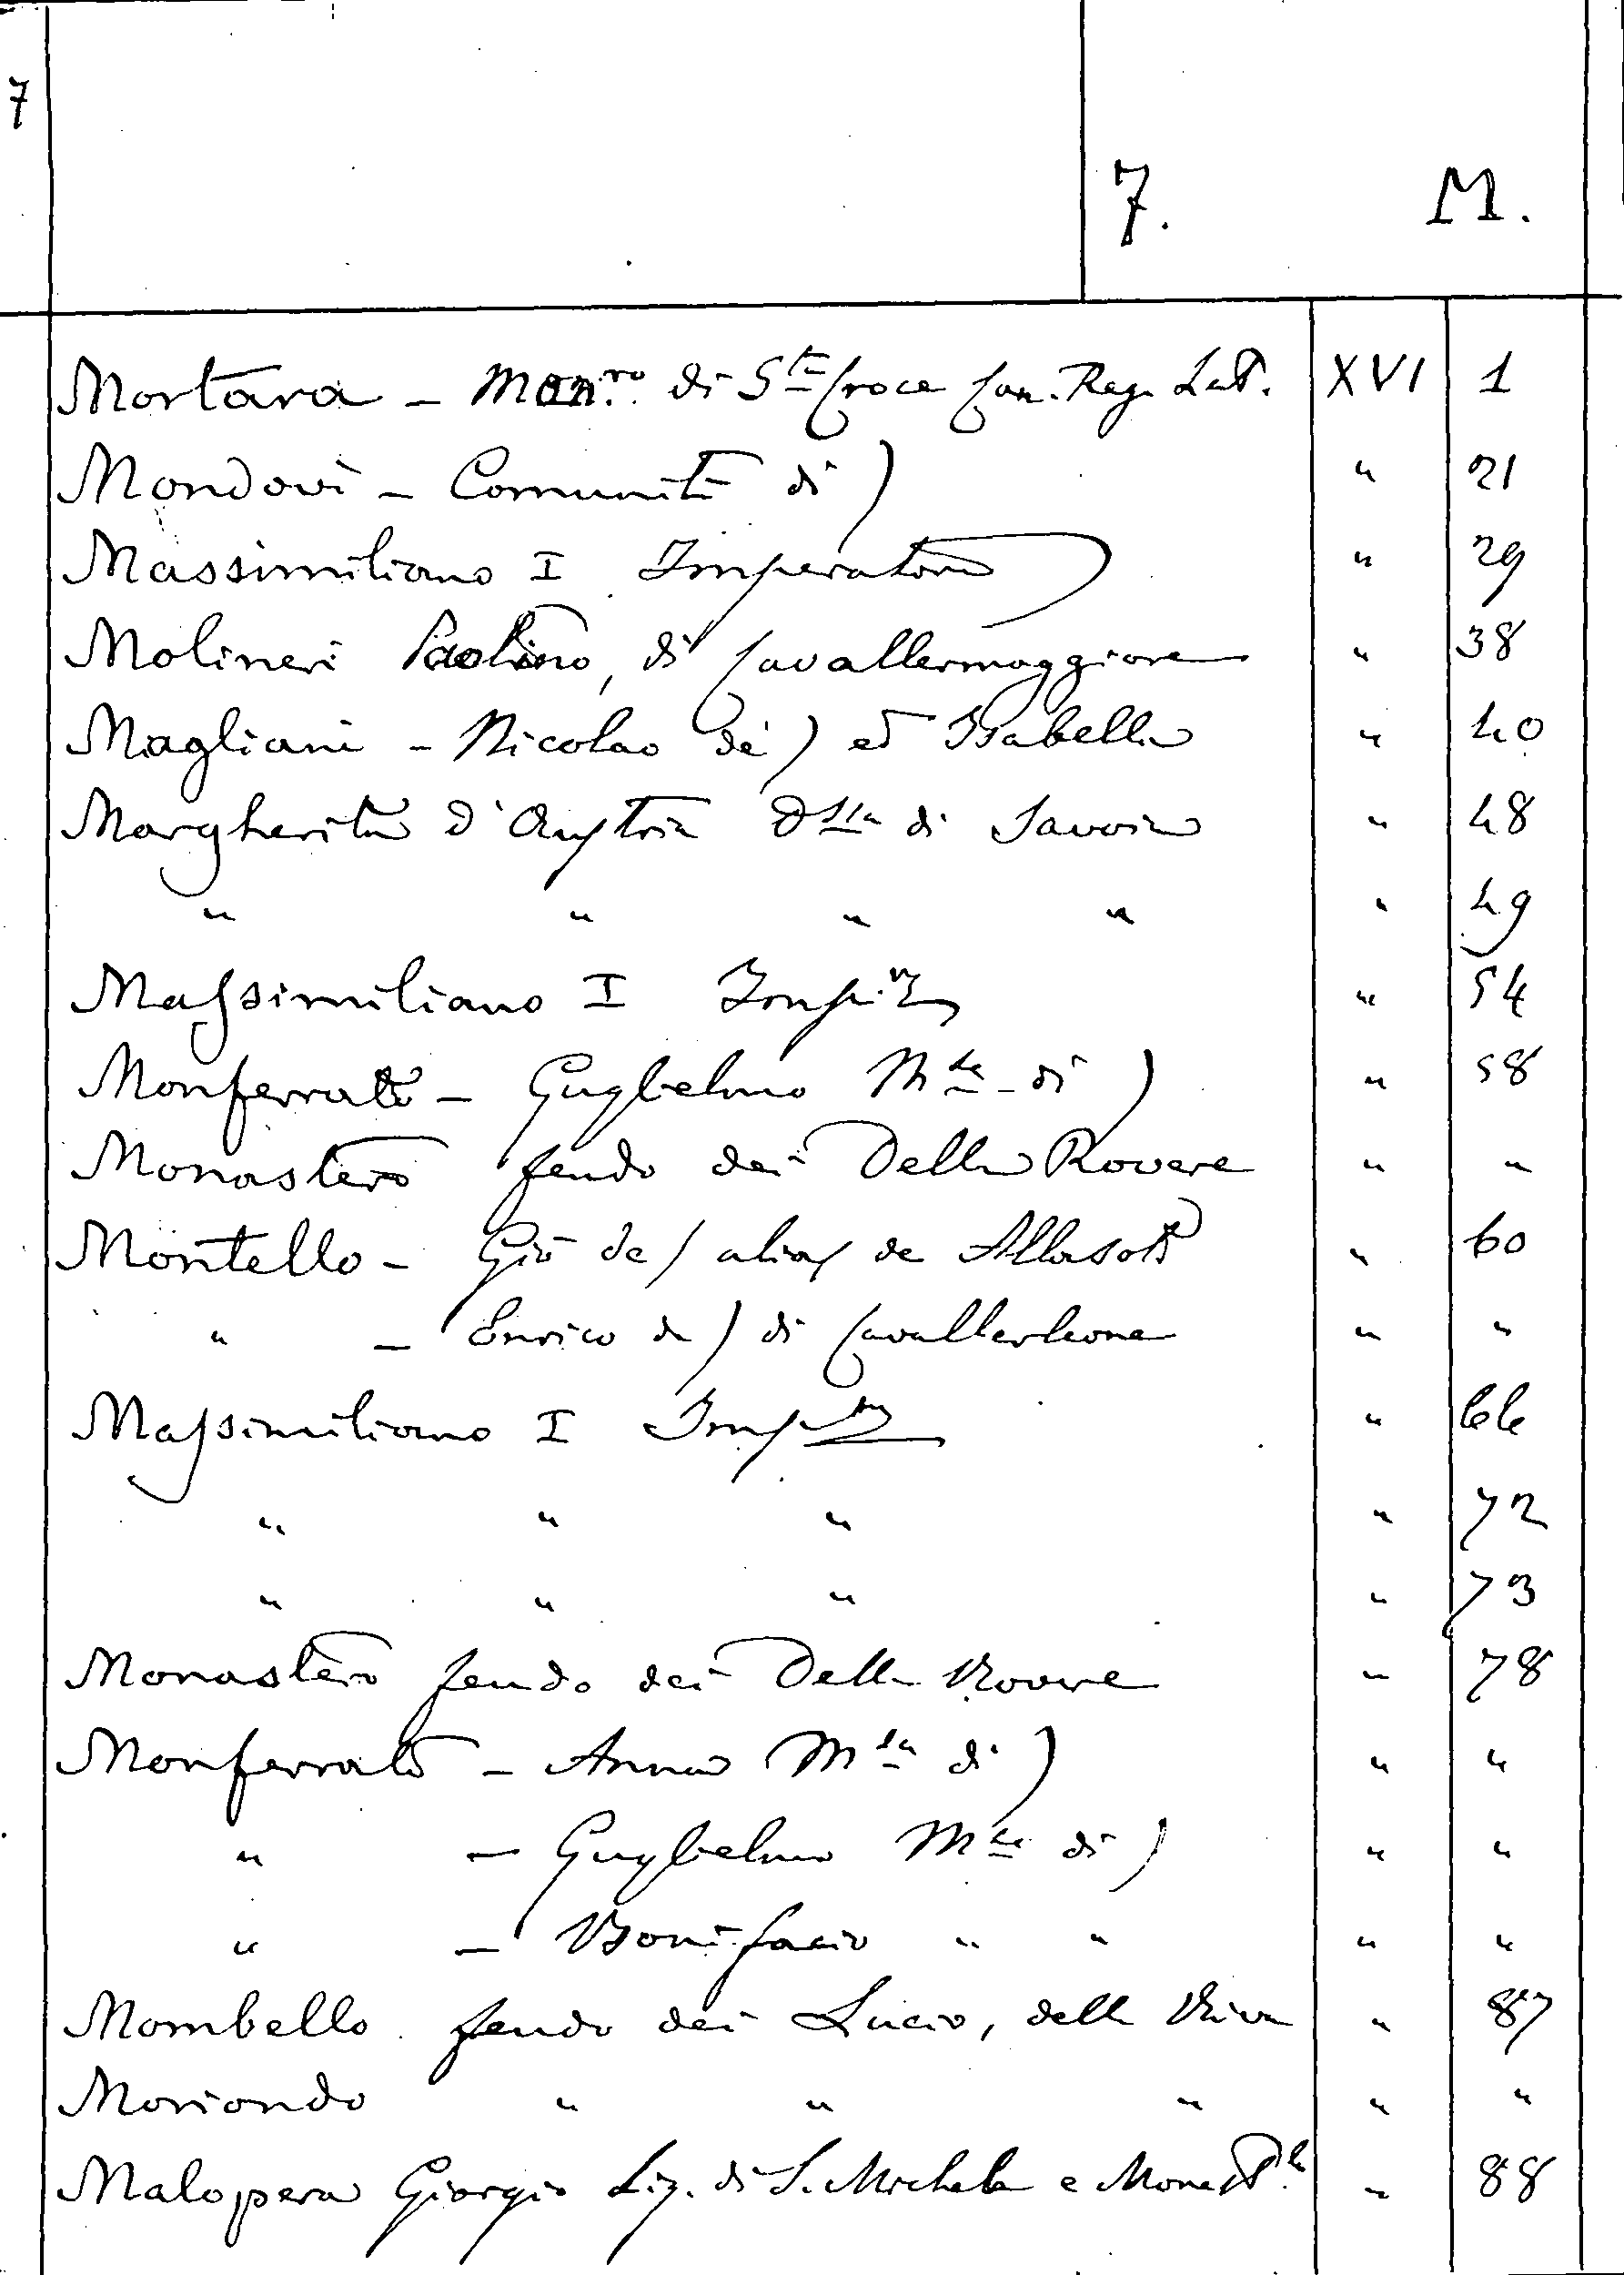 7
7. M.
Mortara - Mon.ro di Sta Croce Can. Reg. Lat. XVI 1
Mondovì - Comunità di) " 21
Massimiliano I Imperatore " 29
Molineri Paolino, di Cavallermaggiore " 38
Magliani - Nicolao de) ed Isabella " 40
Margherita d'Austria Dssa di Savoia " 48
" " " " " 49
Massimiliano I Imp.re " 54
Monferrato - Guglielmo Mse di) " 58
Monastero feudo dei Della Rovere " "
Montello - Giò de) alias de Allasoti " 60
" - Enrico de) di Cavallerleone " "
Massimiliano I Imp.re " 66
" " " " 72
" " " " 73
Monastero feudo dei Della Rovere " 78
Monferrato - Anna Msa di) " "
" - Guglielmo Mse di) " "
" - Bonifacio " " " "
Mombello feudo dei Lucio, della Riva " 87
Moriondo " " " " "
Malopera Giorgio Sig. di S. Michele e " 88